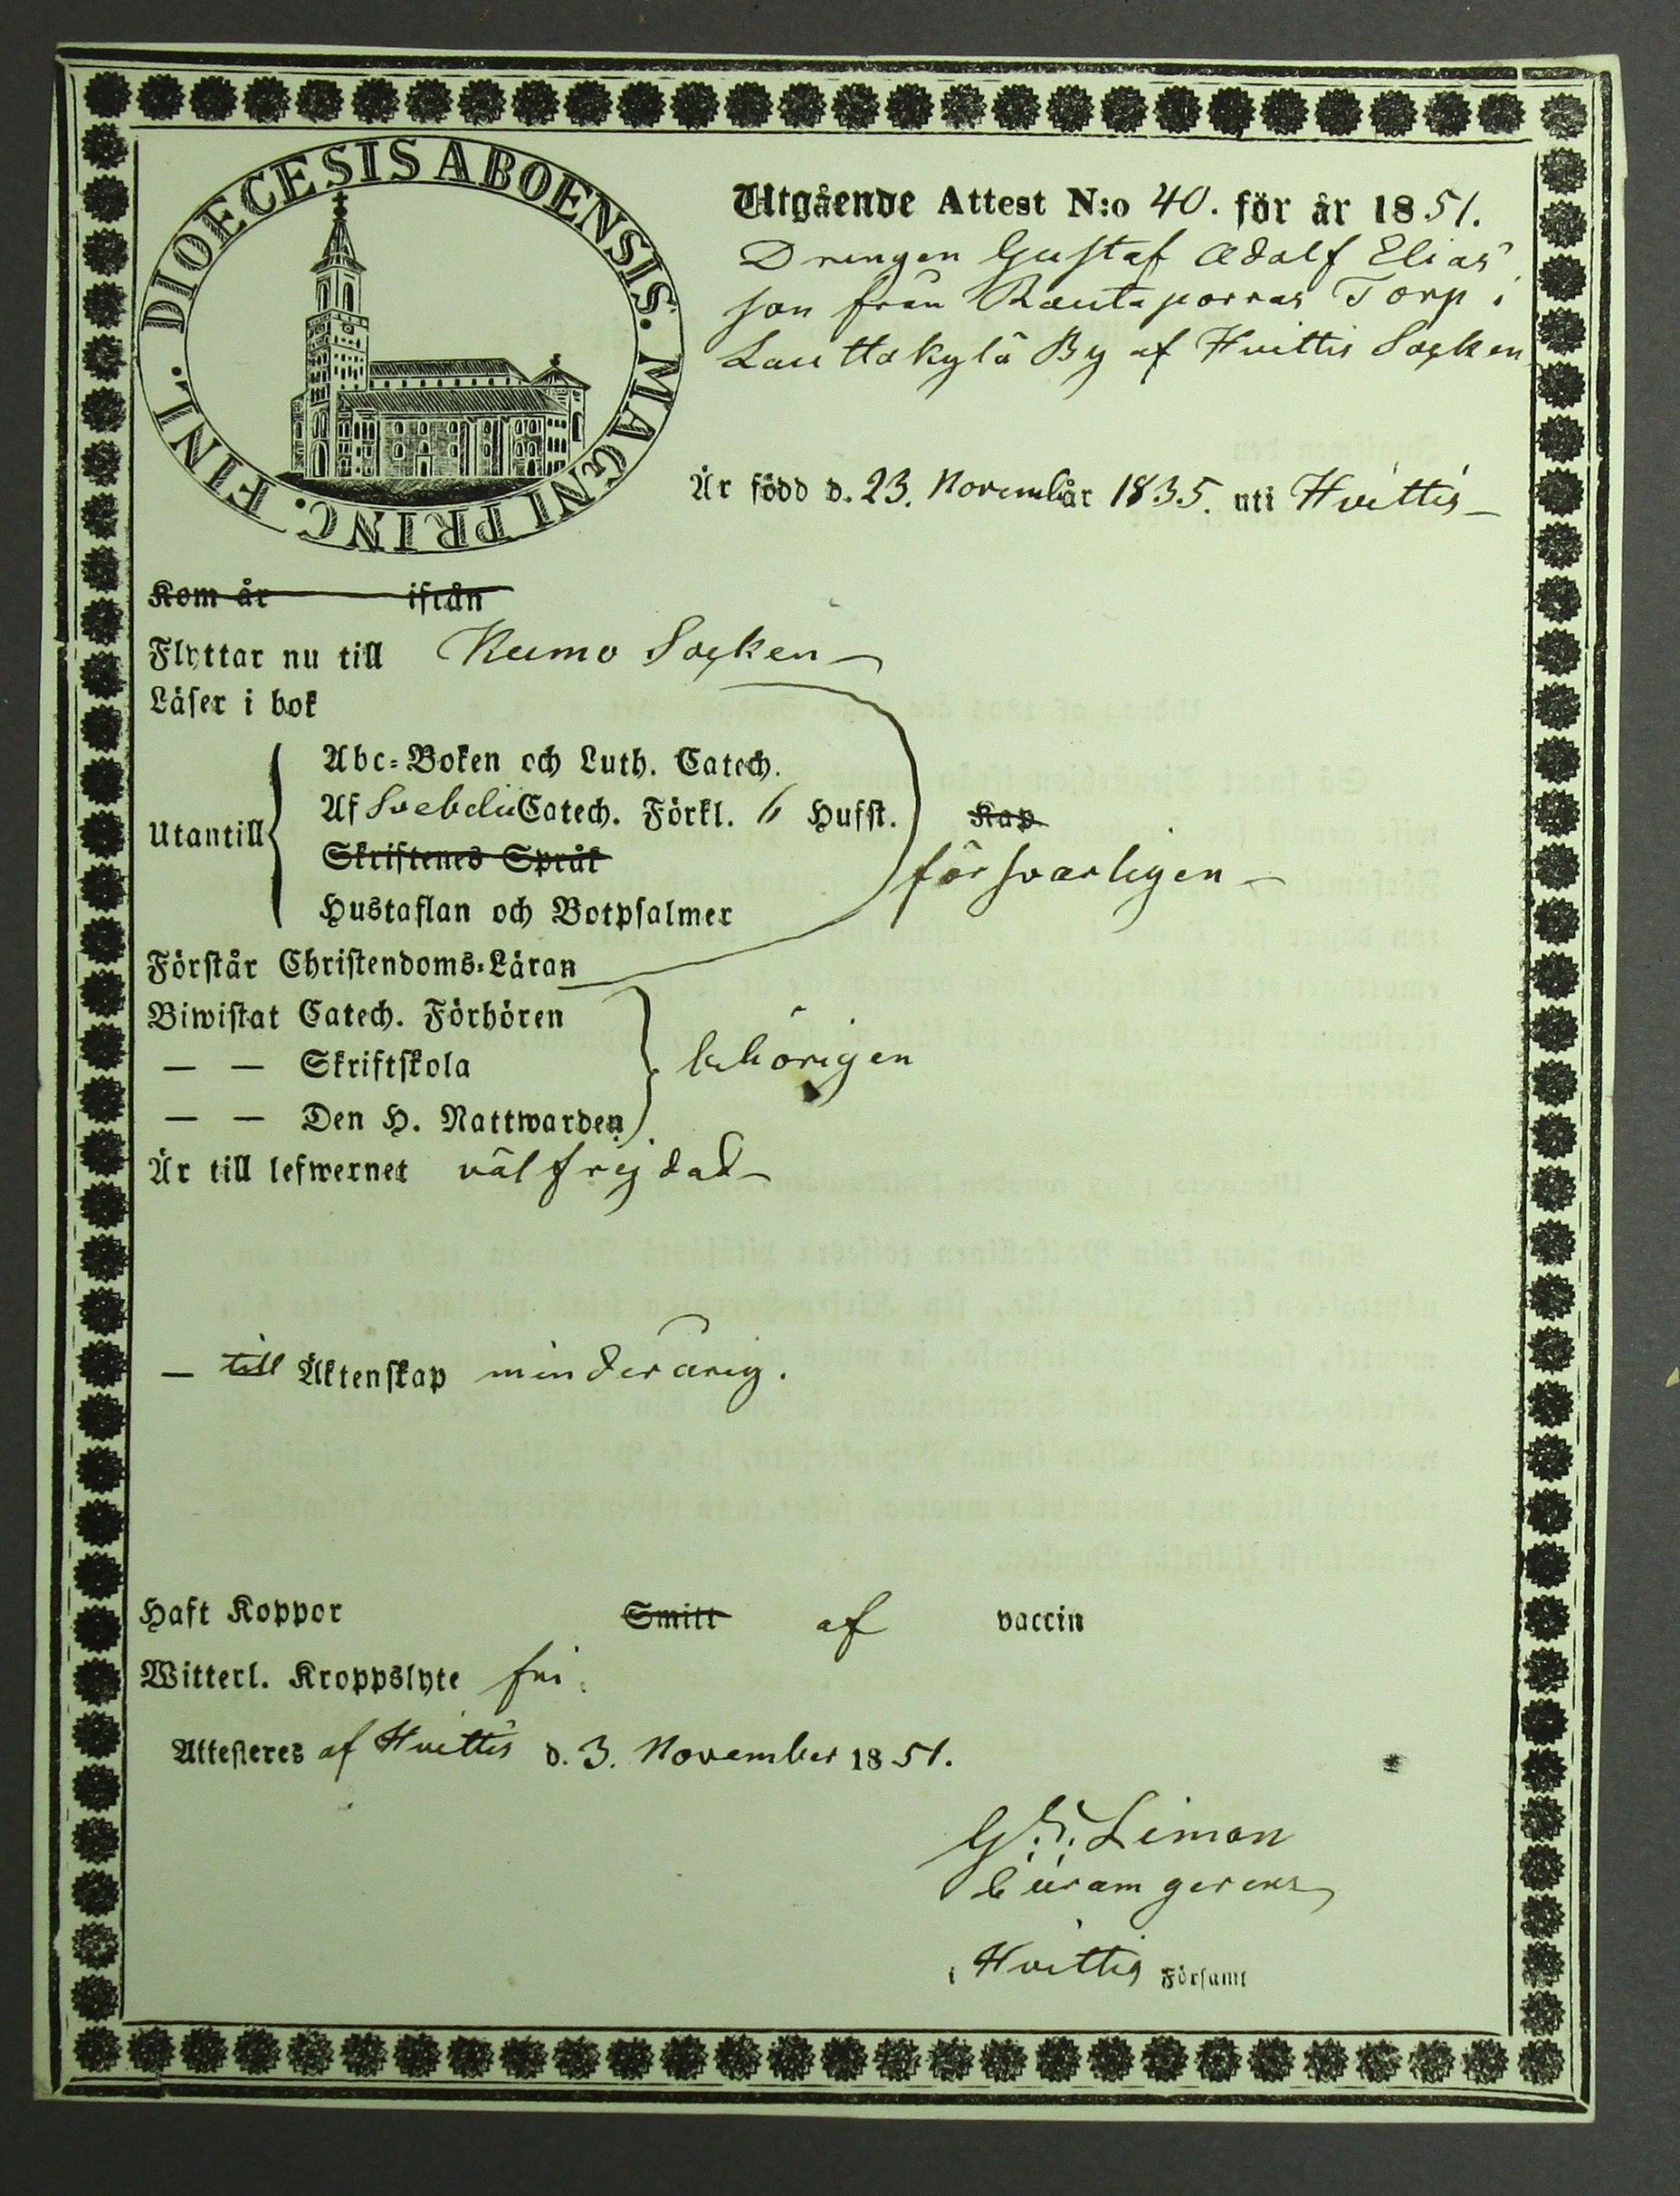 DIOECESIS ABOENSIS. MAGNI PRINC. FINL.
Utgående Attest N:o 40. för år 1851.
Drengen Gustaf Adolf Elias
son från Rautaporras Torp i
Lauttakylä By af Hvittis Socken
Är född d. 23. November år 1835. uti Hvittis
Kom år ifrån
Flyttar nu till Kumo Socken
Läser i bok
Utantill
Abc-Boken och Luth. Catech.
Af Svebelii Catech. Förkl. 6 Hufst. Kap
Skriftenes Språk
försvarligen
Hustaflan och Botpsalmer
Förstår Christendoms-Läran
Biwistat Catech. Förhören
— — Skriftskola behörigen
— — Den H. Nattwarden
Är till lefwernet välfrejdad
— till Äktenskap minderårig.
Haft Koppor Smitt af vaccin
Witterl. Kroppslyte fri.
Attesteres af Hvittis d. 3. November 1851.
Liman
Curam gerens
i Hvittis Församl